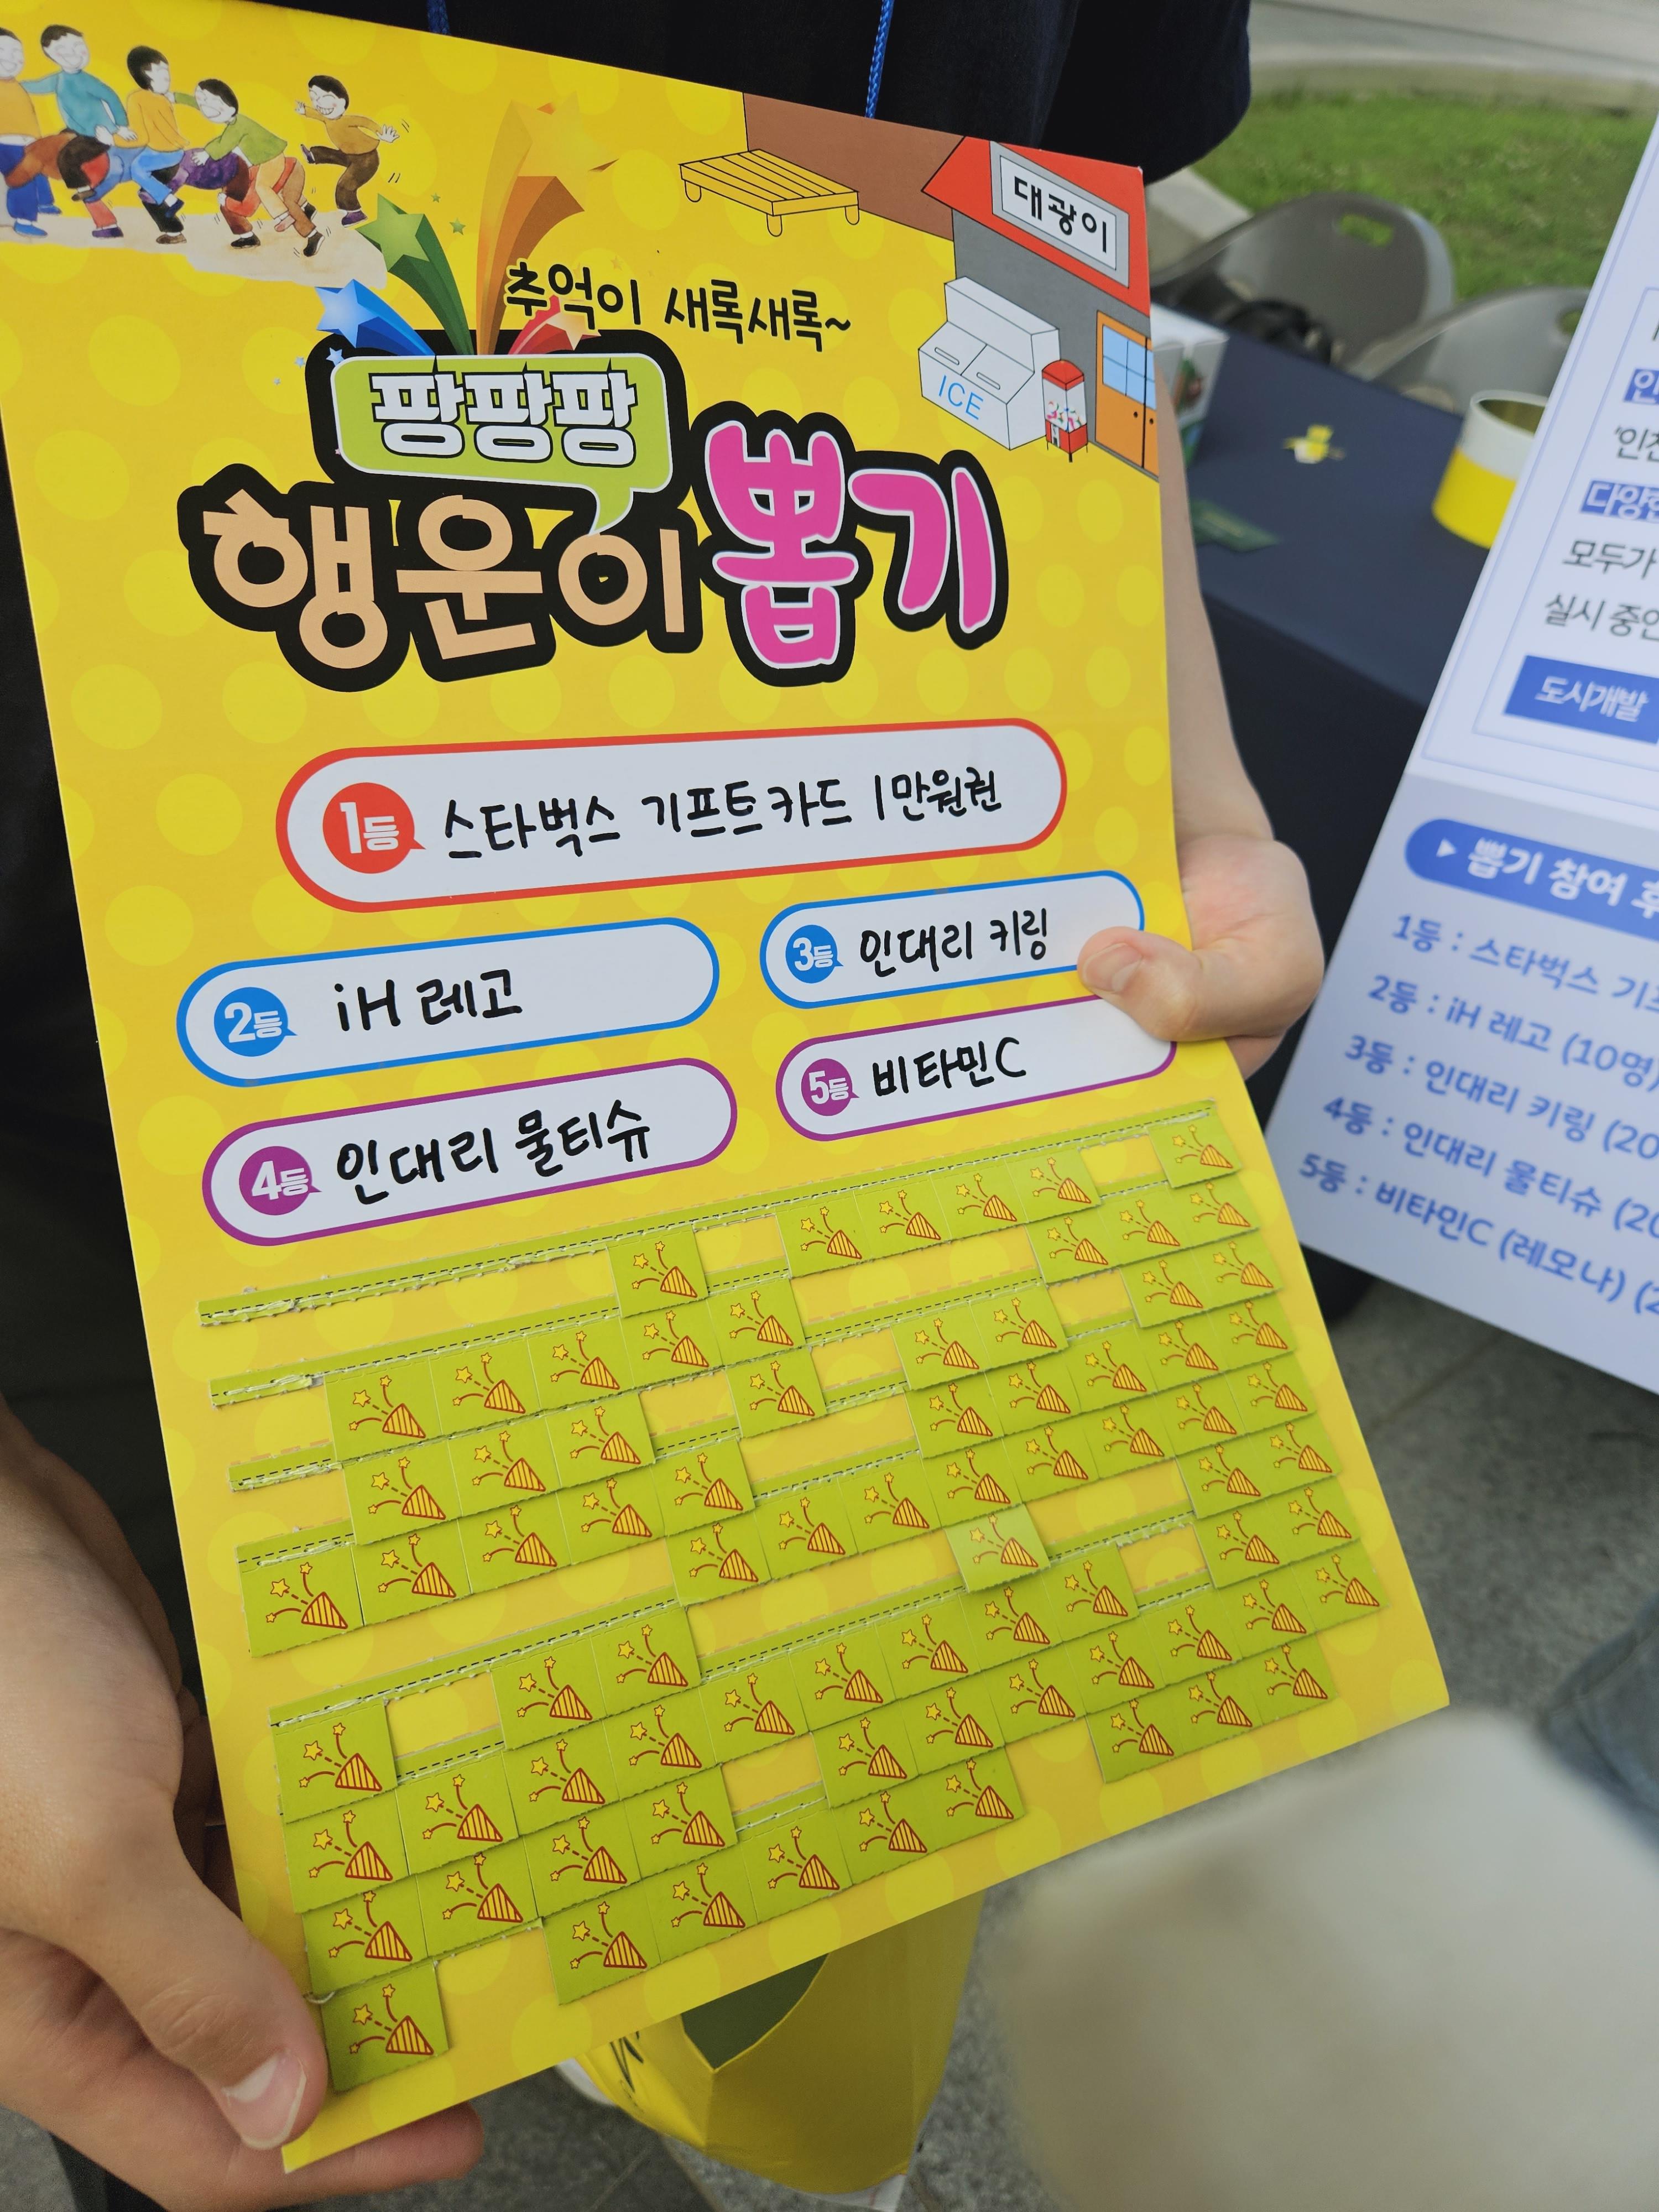 대광이
추억이 새록새록~
ICE
팡팡팡
행운이 뽑기
1등 스타벅스 기프트카드 1만원권
2등 iH 레고
3등 인대리 키링
4등 인대리 물티슈
5등 비타민C
모두가
실시 중인
도시개발
▶ 뽑기 참여 후
1등 : 스타벅스
2등 : iH 레고 (10명)
3등 : 인대리 키링 (20
4등 : 인대리 물티슈 (20
5등 : 비타민C (레모나) (2